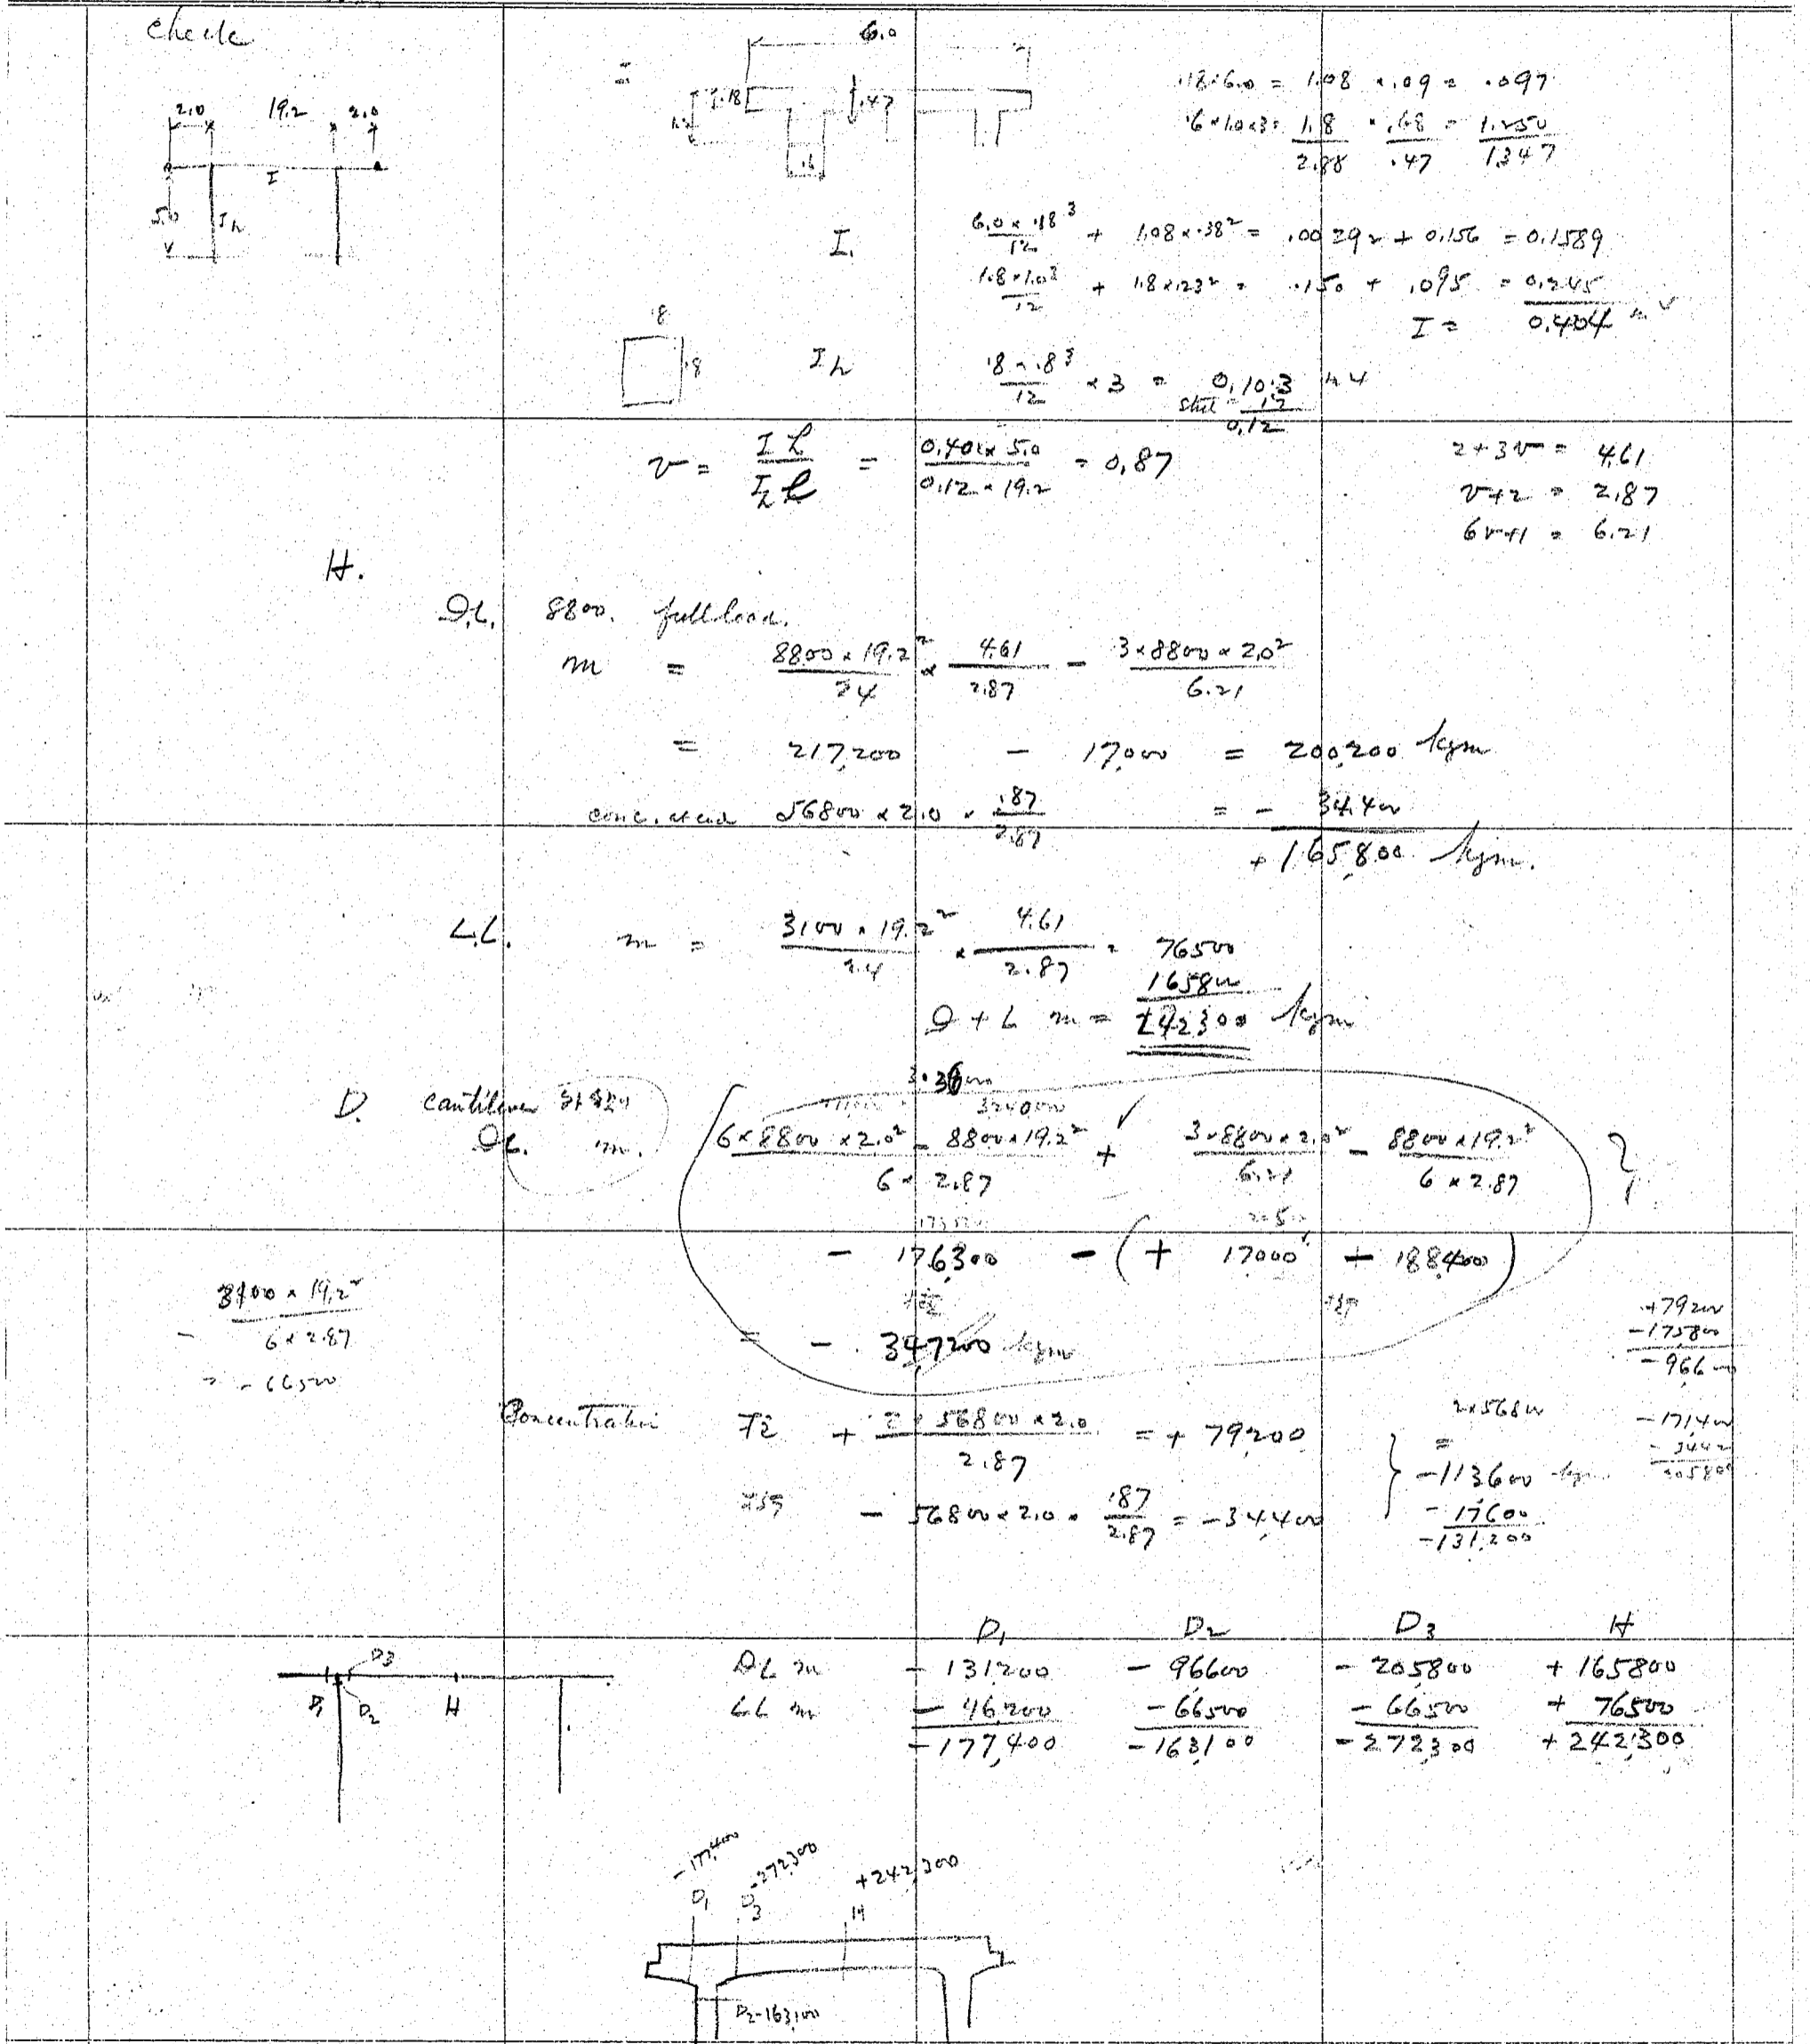 Check
6.0
2.0 19.2 2.0
.18 .47
I
5.0 Ih
.18×6.0 = 1.08 × .09 = .097
.6×1.0×3 = 1.8 × .68 = 1.250
2.88 .47 1347
I. 6.0 × .18³ / 12 + 1.08 × .38² = .00292 + 0.156 = 0.1589
1.8 × 1.0³ / 12 + 1.8 × .23² = .150 + .095 = 0.245
I = 0.404 m4
.8
.8
Ih .8 × .8³ / 12 × 3 = 0.103 m4
0.12
v = I h / Ih l = 0.40 × 5.0 / 0.12 × 19.2 = 0.87
2+3v = 4.61
v+2 = 2.87
6v+1 = 6.21
H.
D.L. 8800. full load.
m = 8800 × 19.2² / 24 × 4.61 / 2.87 − 3×8800 × 2.0² / 6.21
= 217,200 − 17,000 = 200,200 kgm
conc. at end 56800 × 2.0 × .87 / 2.87 = − 34,400
+ 165,800 kgm.
L.L. m = 3100 × 19.2² / 24 × 4.61 / 2.87 = 76500
165800
D + L m = 242300 kgm
D. cantilever
DL. m. 6×8800 × 2.0² − 8800×19.2² / 6 × 2.87 + 3×8800×2.0² / 6.21 − 8800×19.2² / 6 × 2.87 ?
− 176,300 − ( + 17000 + 188,400 )
= − 347,200 kgm
3100 × 19.2² / 6 × 2.87
= − 66500
+79200
−175800
−96600
Concentration + 2 × 56800 × 2.0 / 2.87 = + 79,200
− 56800 × 2.0 × .87 / 2.87 = −34,400
2×56800
=
−113600
− 17600
−131,200
−171400
− 34400
205800
D1 D2 D3 H
DL m − 131200 − 96600 − 205800 + 165800
LL m − 46,200 − 66500 − 66500 + 76500
−177,400 −163,100 −272,300 + 242,300
D3
D2 H
−177,400 −272,300 +242,300
D1 D3 H
D2 −163,100